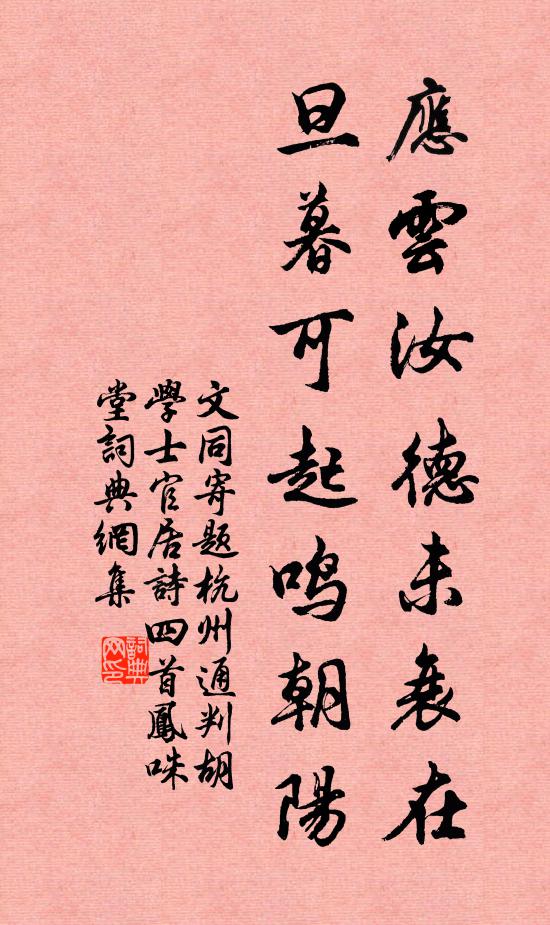 應雲汝德未衰在
旦暮可起鳴朝陽
文同寄題杭州通判胡
學士官居詩四首鳳咮
堂詞典網集
詞典
网印